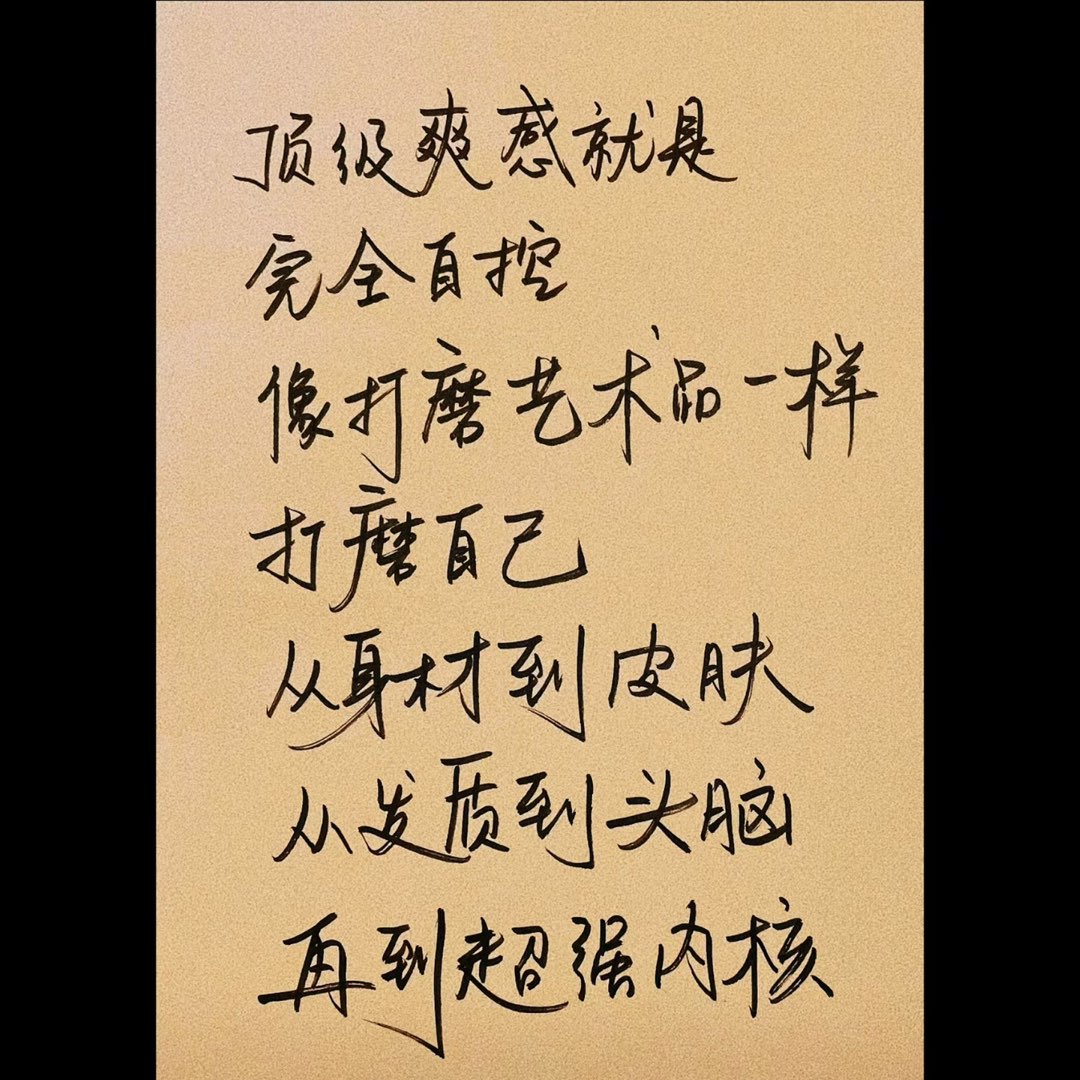 顶级爽感就是
完全自控
像打磨艺术品一样
打磨自己
从身材到皮肤
从发质到头脑
再到超强内核